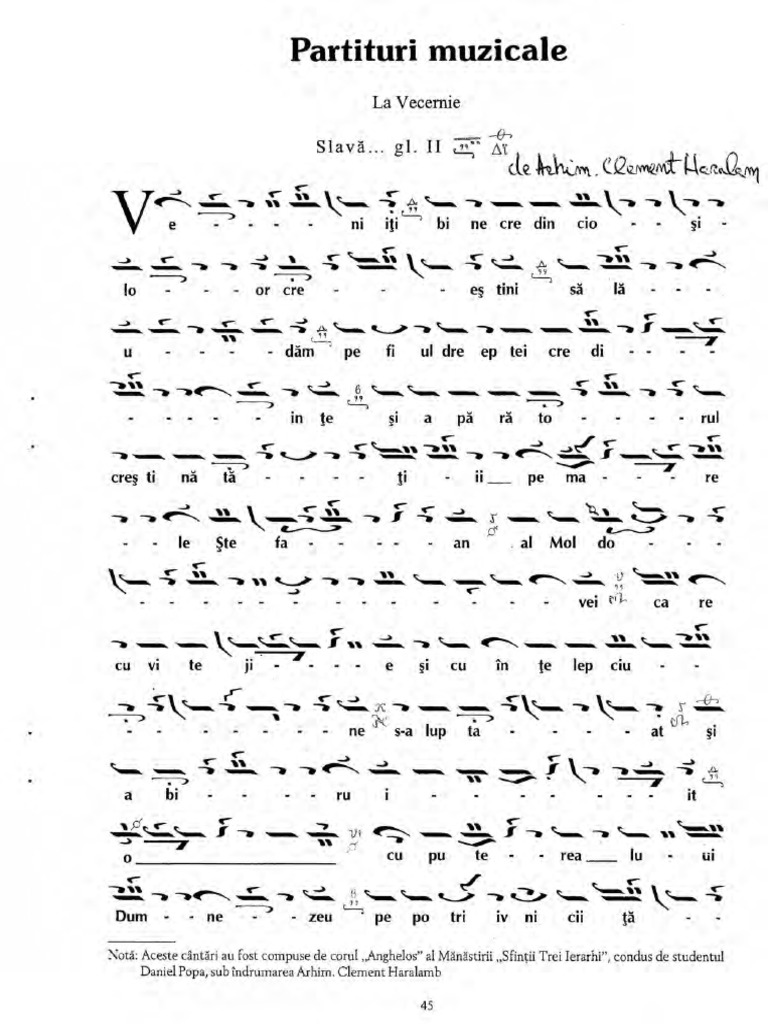 Partituri muzicale
La Vecernie
Slavă... gl. II
de Arhim. Clement Haralam
Ve - - - - ni iţi bi ne cre din cio - - şi -
lo - - - or cre - - - eş tini să lă - - -
u - - - - dăm pe fi ul dre ep tei cre di - - - -
- - - - - in ţe şi a pă ră to - - - - rul
creş ti nă tă - - - - - ţi - ii___ pe ma - - - re
- - le Şte fa - - - - - an al Mol do - - - -
- - - - - - - - - - - - - vei ca re
cu vi te ji - - - - e şi cu în ţe lep ciu - -
- - - - - - - - ne s-a lup ta - - - - at şi
a bi - - - - - ru i - - - - - - - it
o___ cu pu te - - rea___ lu - ui
Dum - - ne - - zeu pe po tri iv ni cii ţă - -
Notă: Aceste cântări au fost compuse de corul „Anghelos” al Mănăstirii „Sfinţii Trei Ierarhi”, condus de studentul
Daniel Popa, sub îndrumarea Arhim. Clement Haralamb
45